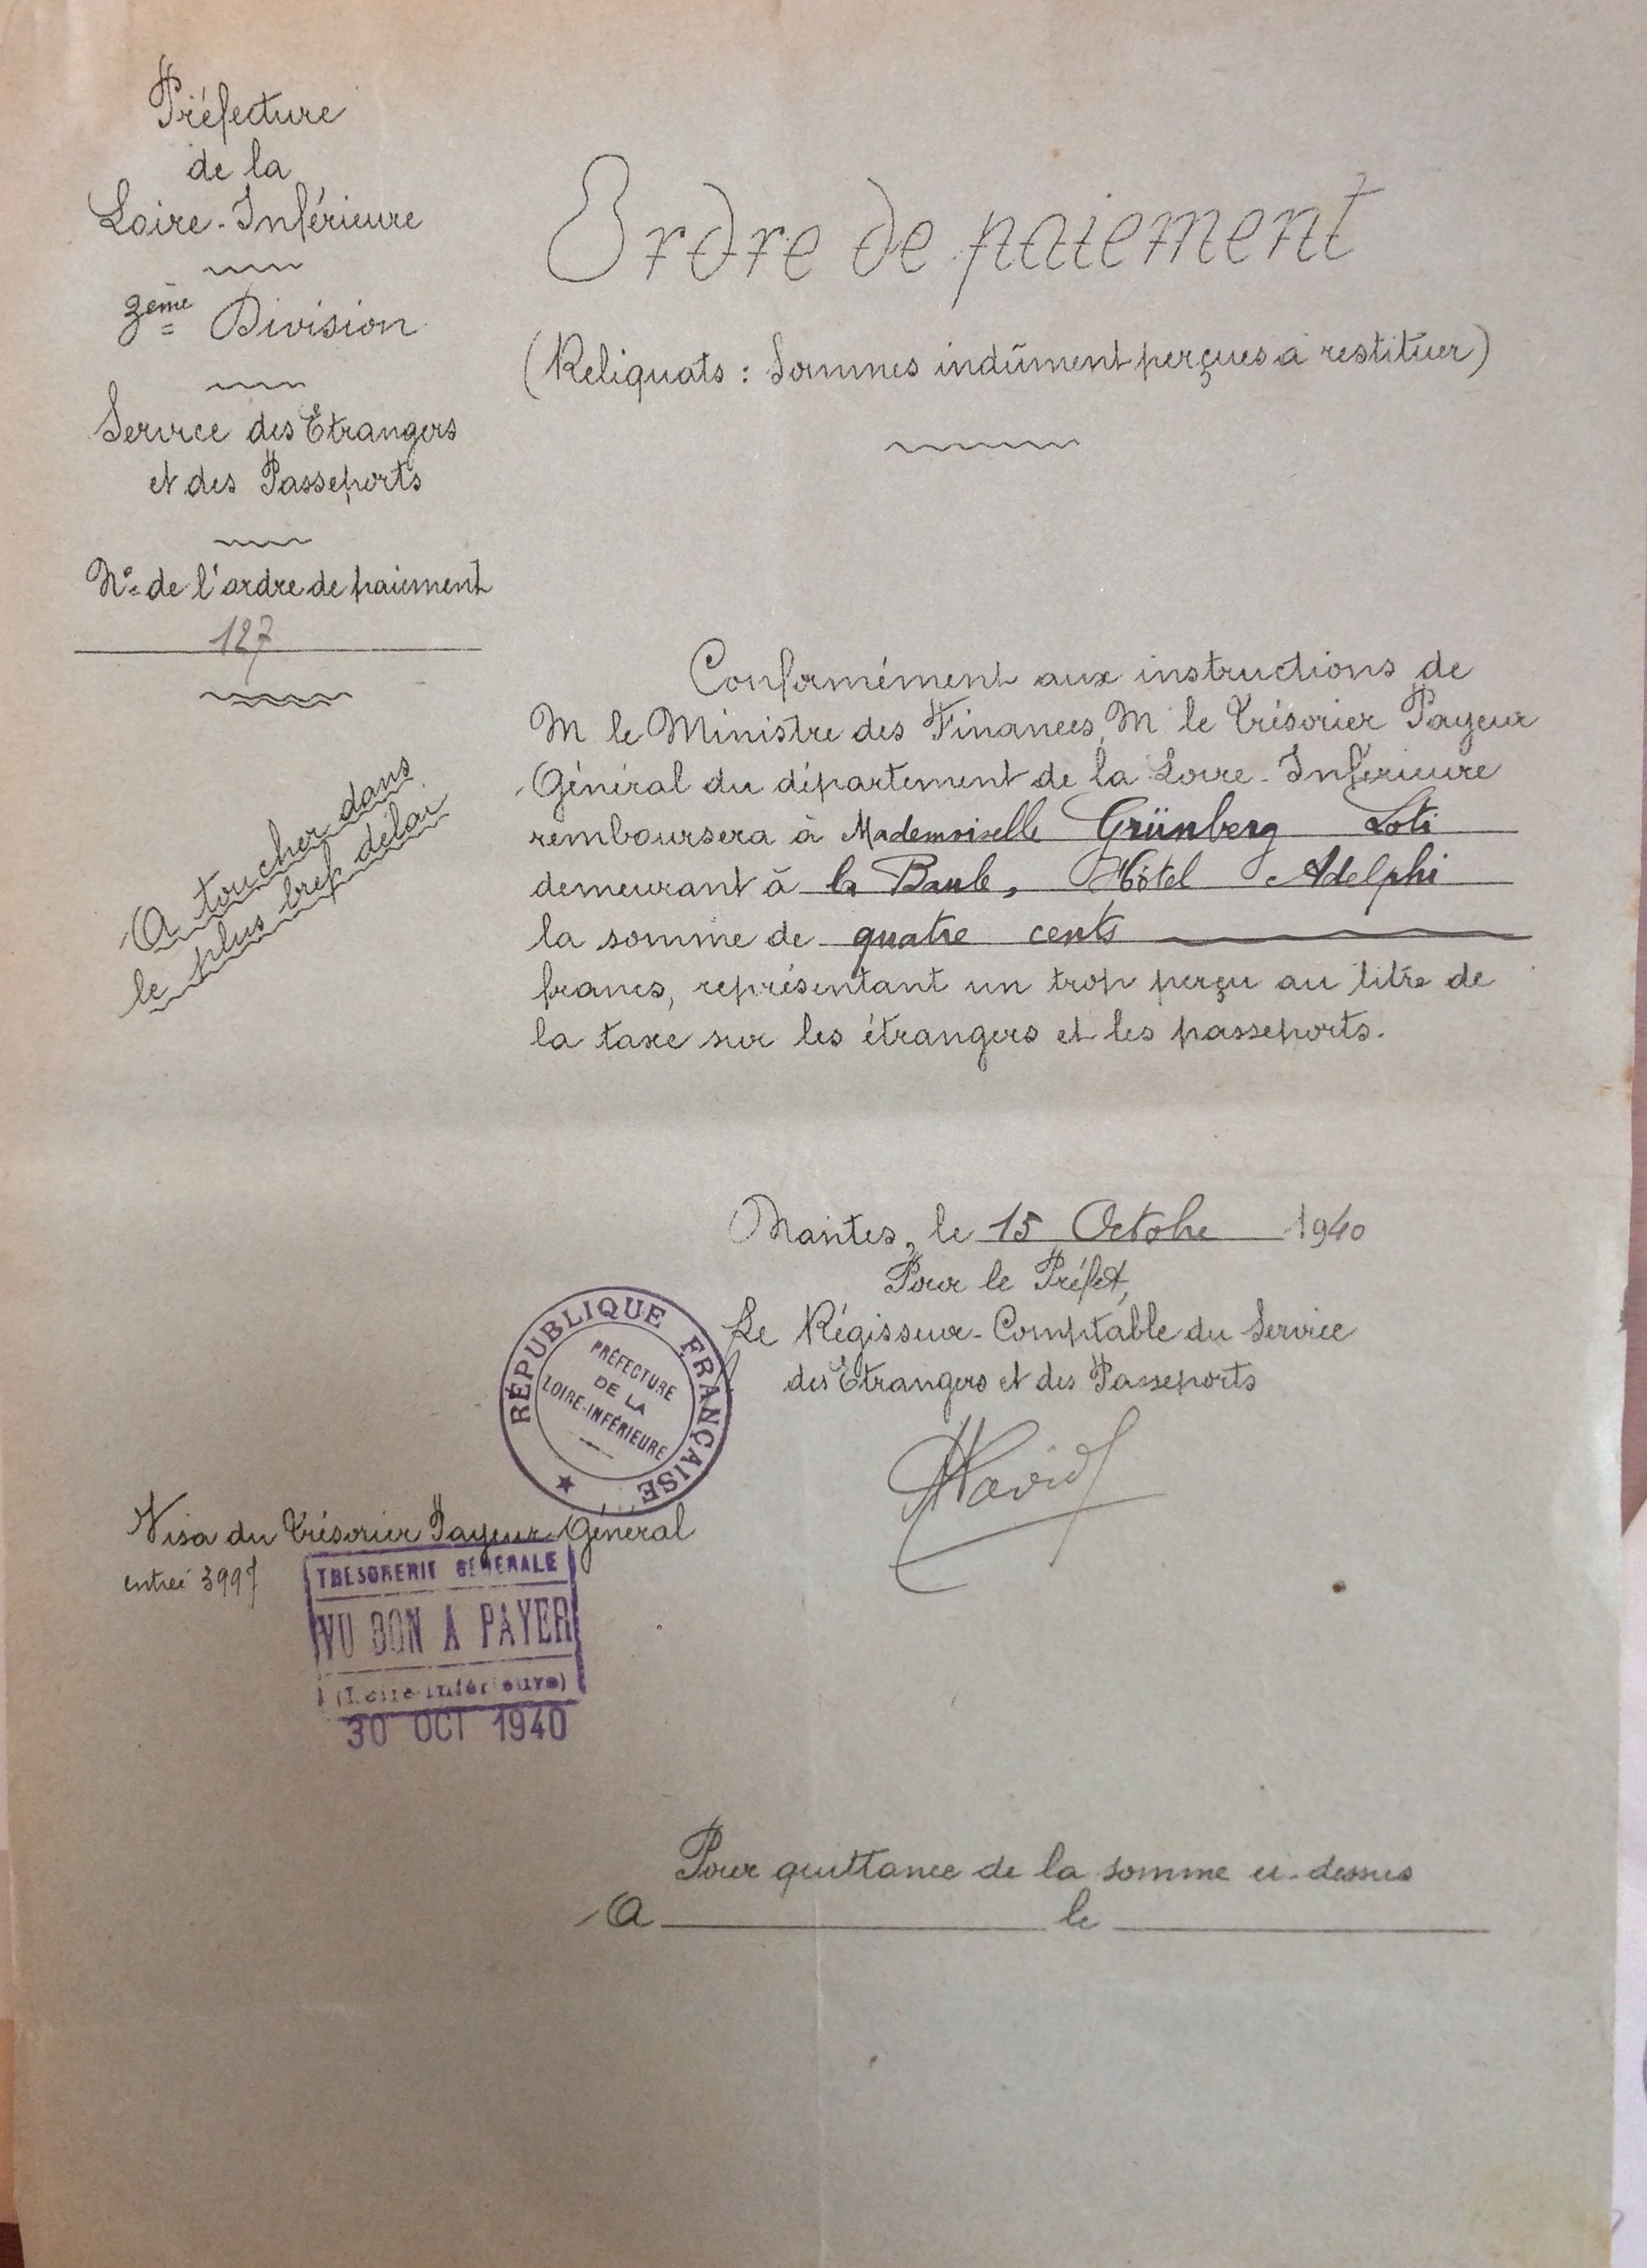 Préfecture
de la
Loire-Inférieure
3ème Division
Service des Etrangers
et des Passeports
N° de l'ordre de paiement
127
A toucher dans
le plus bref délai
Ordre de paiement
(Reliquats : Sommes indûment perçues à restituer)
Conformément aux instructions de
M le Ministre des Finances, M le Trésorier Payeur
Général du département de la Loire-Inférieure
remboursera à Mademoiselle Grünberg Loti
demeurant à la Baule, Hôtel Adelphi
la somme de quatre cents
francs, représentant un trop perçu au titre de
la taxe sur les étrangers et les passeports.
Nantes, le 15 Octobre 1940
Pour le Préfet,
Le Régisseur-Comptable du Service
des Etrangers et des Passeports
David
RÉPUBLIQUE FRANÇAISE
PRÉFECTURE
DE LA
LOIRE-INFÉRIEURE
Visa du Trésorier Payeur-Général
entrée 3997
TRESORERIE GENERALE
VU BON A PAYER
(Loire-Inférieure)
30 OCT 1940
Pour quittance de la somme ci-dessus
A le